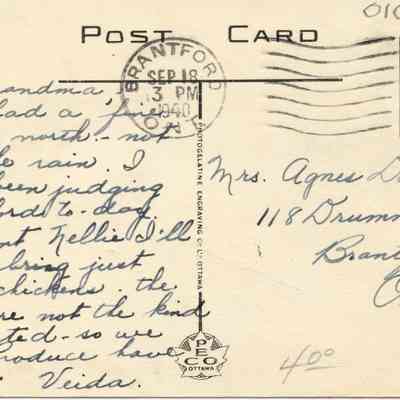 POST CARD
010
BRANTFORD
SEP 18
3 PM
1940
ONT
andma
had a fine
north - not
rain. I
een judging
ords to-day.
nt Nellie I'll
bring just
chickens. the
re not the kind
ted - so we
roduce have
Veida.
PHOTOGELATINE ENGRAVING CO LTD OTTAWA
PECO
OTTAWA
Mrs. Agnes D
118 Drumm
Brant
O
4.00